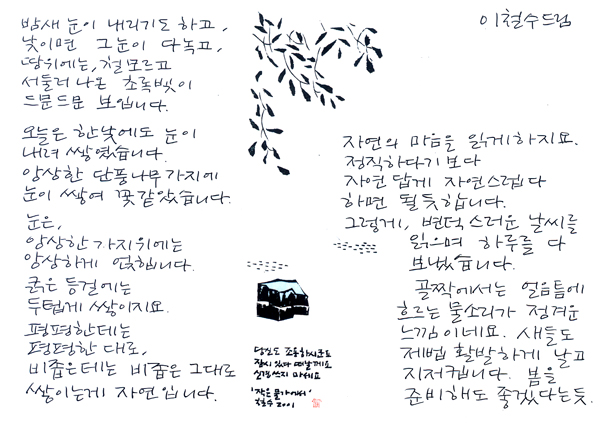 밤새 눈이 내리기도 하고,
낮이면 그 눈이 다 녹고,
땅위에는, 철모르고
서둘러 나온 초록빛이
드문드문 보입니다.
오늘은 한낮에도 눈이
내려 쌓였습니다.
앙상한 단풍나무 가지에
눈이 쌓여 꽃 같았습니다.
눈은,
앙상한 가지위에는
앙상하게 얹힙니다.
굵은 등걸에는
두텁게 쌓이지요.
평평한데는
평평한 대로,
비좁은데는 비좁은 그대로
쌓이는게 자연입니다.
당신도 조용하시군요
잠시 있다 떠날게요
신경쓰지 마세요
'작은 물가에서'
철수 2001
이철수드림
자연의 마음을 읽게하지요.
정직하다기 보다
자연 답게 자연스럽다
하면 될 듯합니다.
그렇게, 변덕스러운 날씨를
읽으며 하루를 다
보냈습니다.
골짝에서는 얼음틈에
흐르는 물소리가 정겨운
느낌이네요. 새들도
제법 활발하게 날고
지저귑니다. 봄을
준비해도 좋겠다는듯.